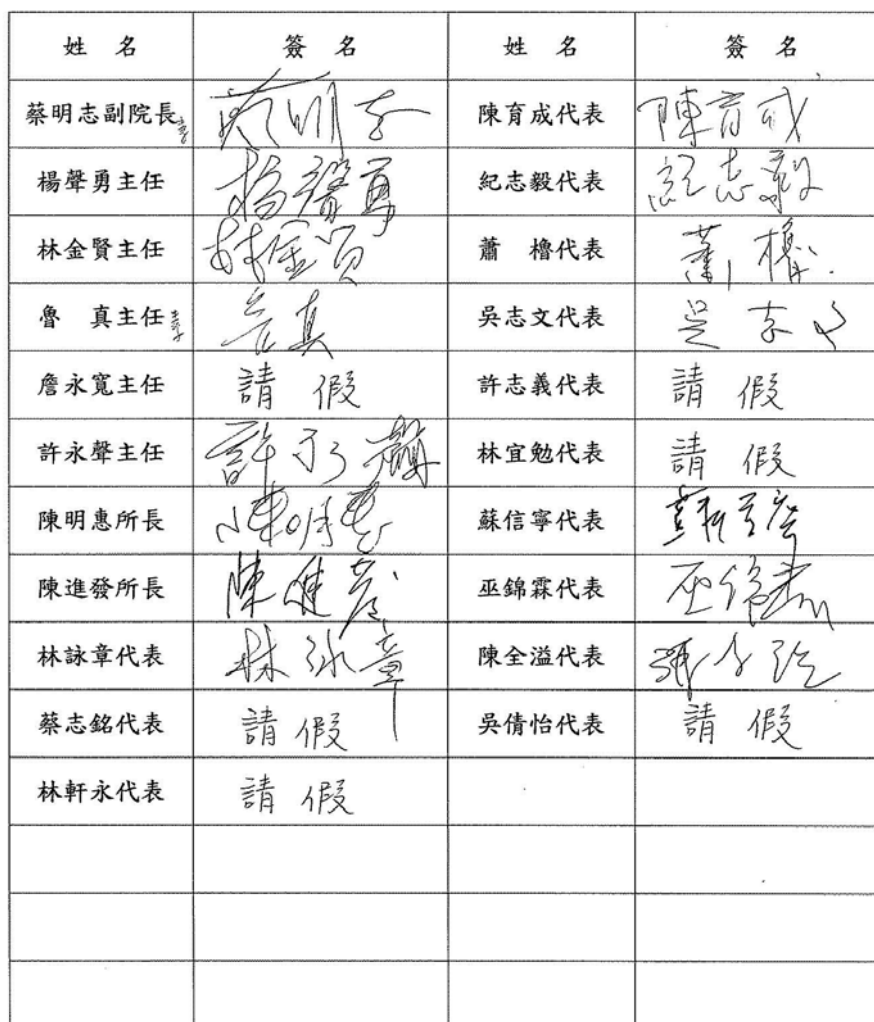 姓 名 簽 名 姓 名 簽 名
蔡明志副院長 陳育成代表 陳育成
楊聲勇主任 楊聲勇 紀志毅代表 紀志毅
林金賢主任 林金賢 蕭 櫓代表 蕭櫓
魯 真主任 魯真 吳志文代表 吳志文
詹永寬主任 請假 許志義代表 請假
許永聲主任 許永聲 林宜勉代表 請假
陳明惠所長 陳明惠 蘇信寧代表
陳進發所長 陳進發 巫錦霖代表 巫錦霖
林詠章代表 林詠章 陳全溢代表
蔡志銘代表 請假 吳倩怡代表 請假
林軒永代表 請假